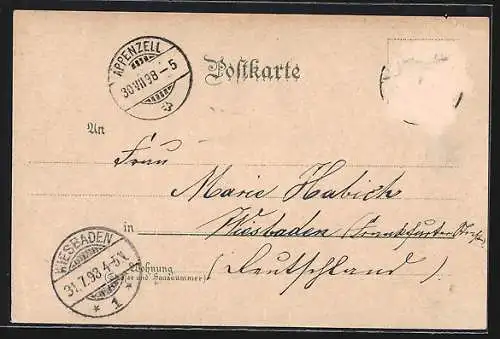 APPENZELL
30.VII.98–5
Postkarte
An
Frau
Marie Habich
in Wiesbaden (Frankfurter
(Deutschland)
Wohnung
und Hausnummer)
WIESBADEN
31.7.98.4-5N.
* 1 *